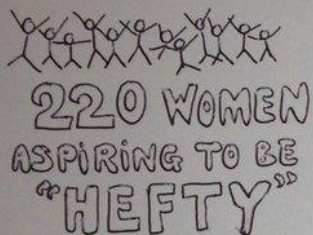 220 WOMEN
ASPiRiNG TO BE
"HEFTY"